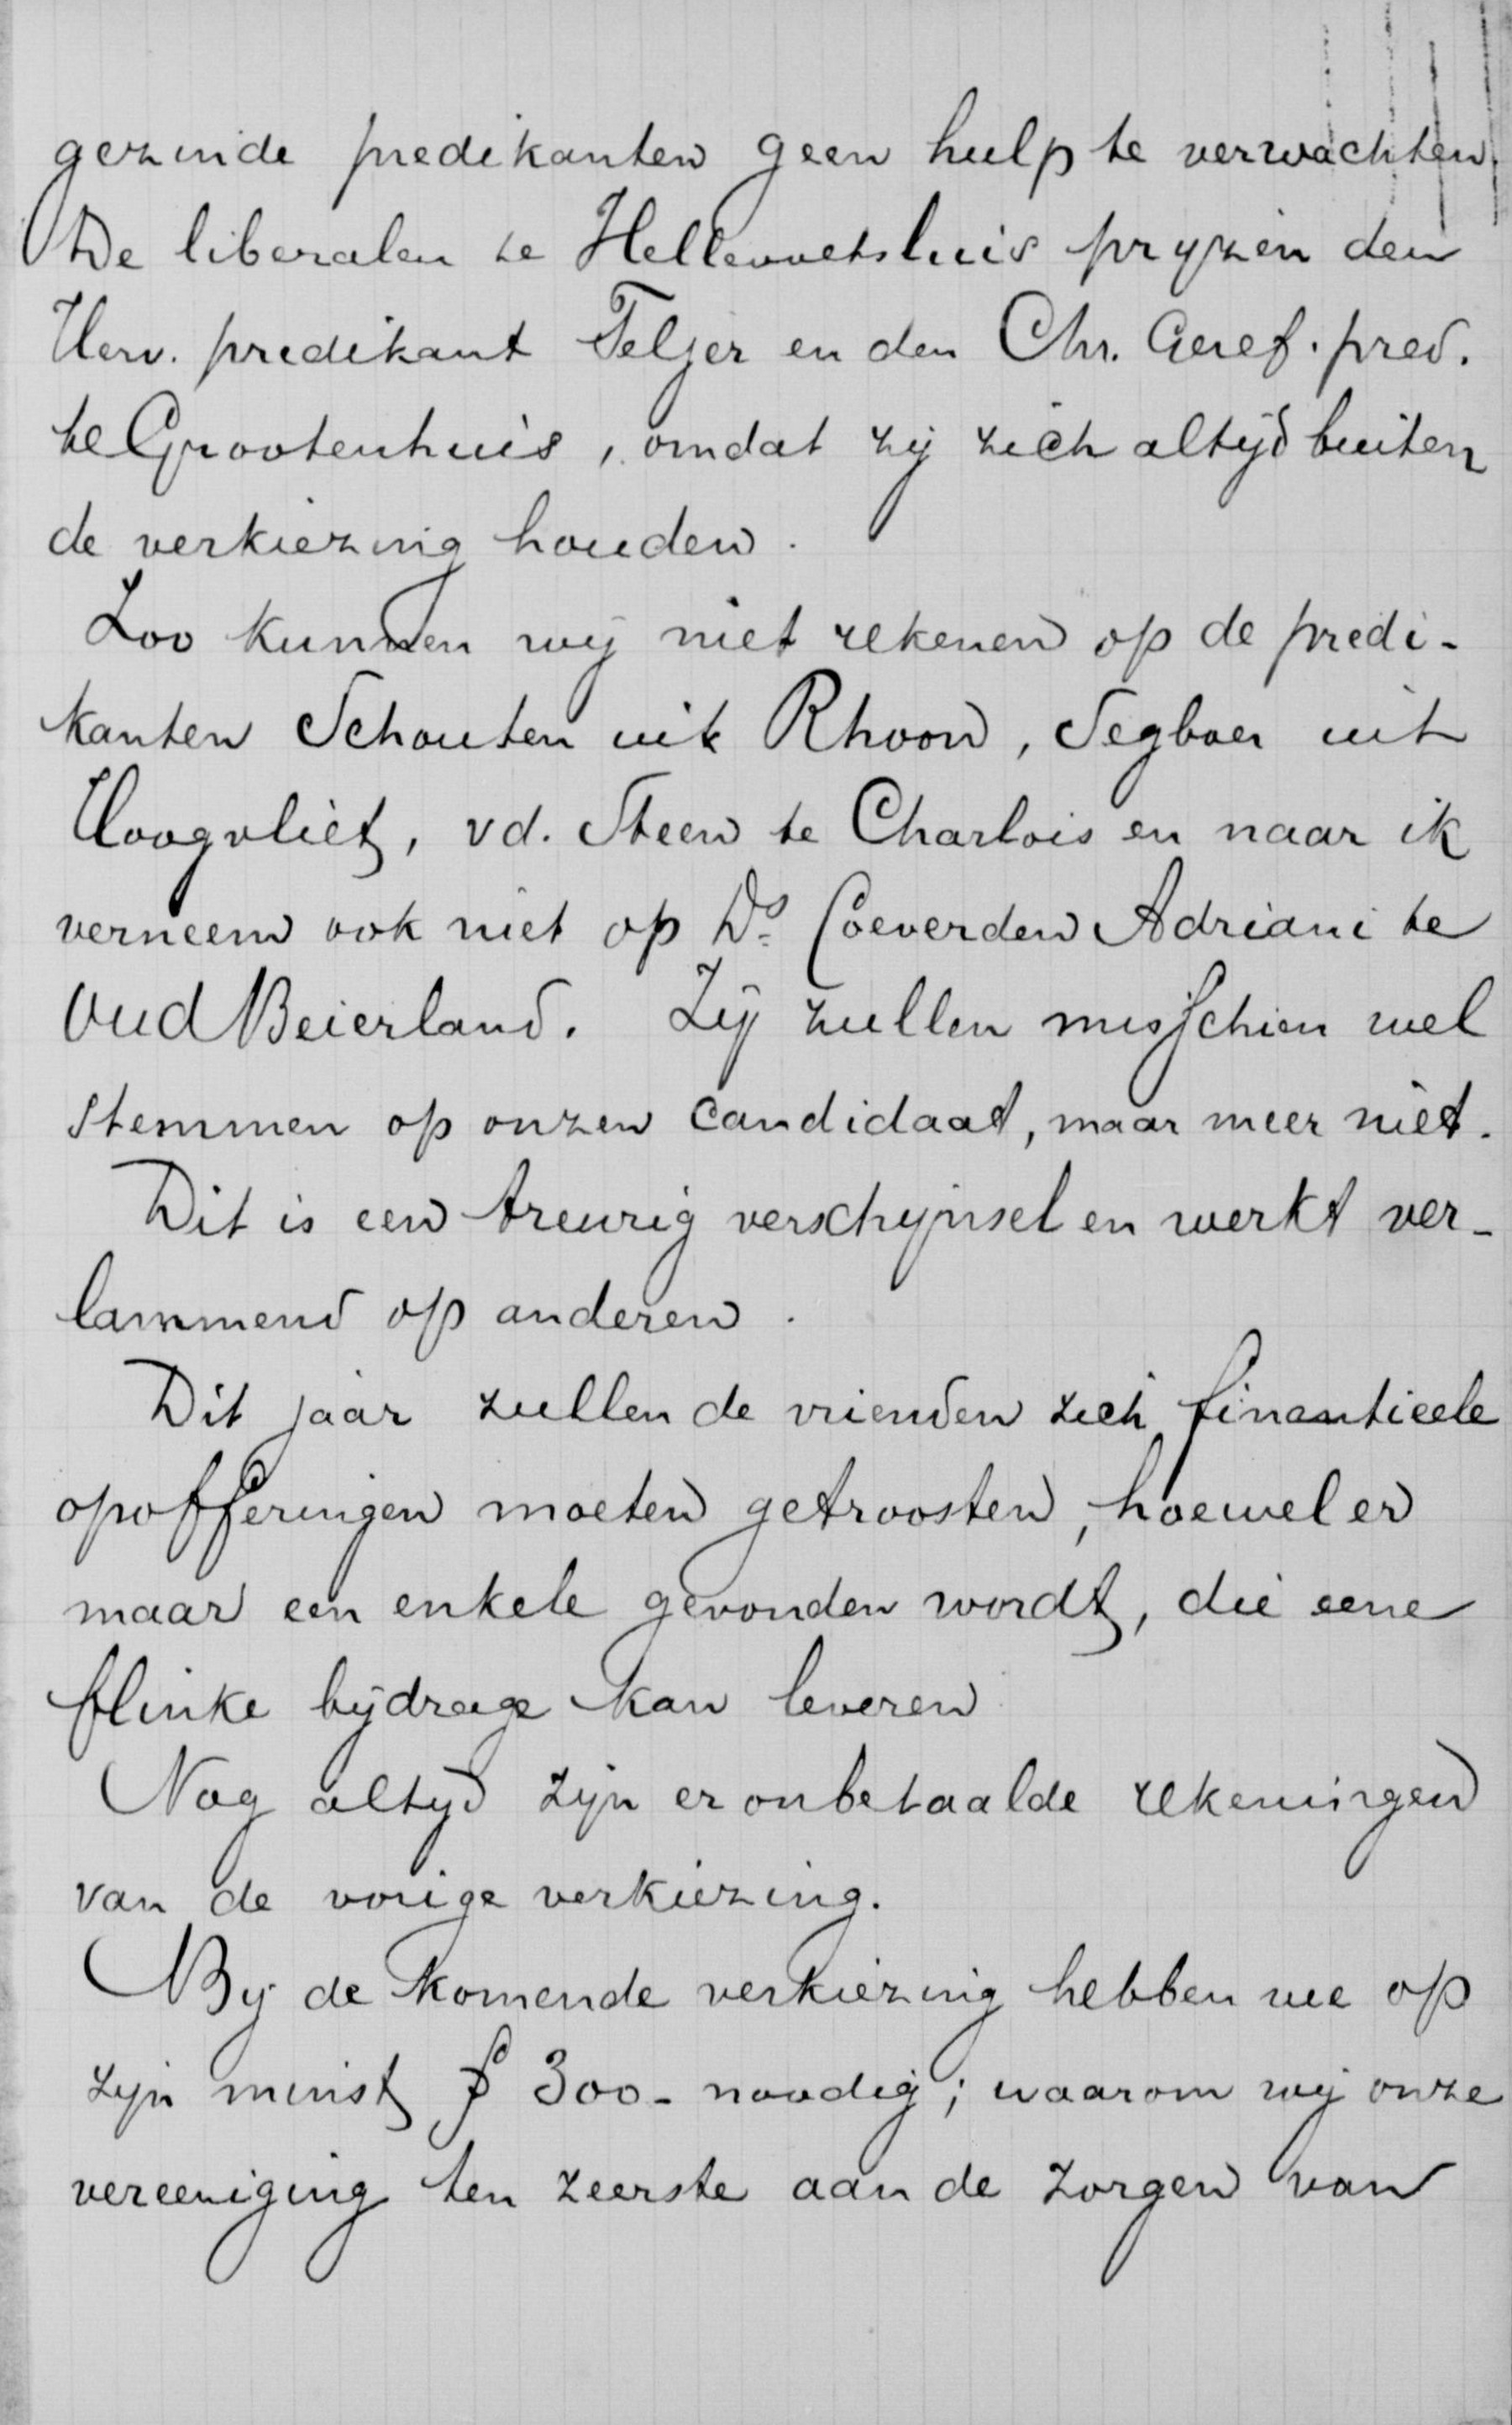 gezinde predikanten geen hulp te verwachten.
De liberalen te Hellevoetsluis pryzen den
Herv. predikant Teljer en den Chr. Geref. pred.
te Grootenhuis, omdat zij zich altijd buiten
de verkiezing houden.
Zoo kunnen wij niet rekenen op de predi-
kanten Schouten uit Rhoon, Segboer uit
Hoogvliet, vd. Steen te Charlois en naar ik
verneem ook niet op Ds. Coeverden Adriani te
Oud Beierland. Zij zullen misschien wel
stemmen op onzen candidaat, maar meer niet.
Dit is een treurig verschijnsel en werkt ver-
lammend op anderen.
Dit jaar zullen de vrienden zich finantieele
opofferingen moeten getroosten, hoewel er
maar een enkele gevonden wordt, die eene
flinke bijdrage kan leveren
Nog altyd zijn er onbetaalde rekeningen
van de vorige verkiezing.
By de komende verkiezing hebben we op
zijn minst f 300- noodig; waarom wij onze
vereeniging ten zeerste aan de zorgen van